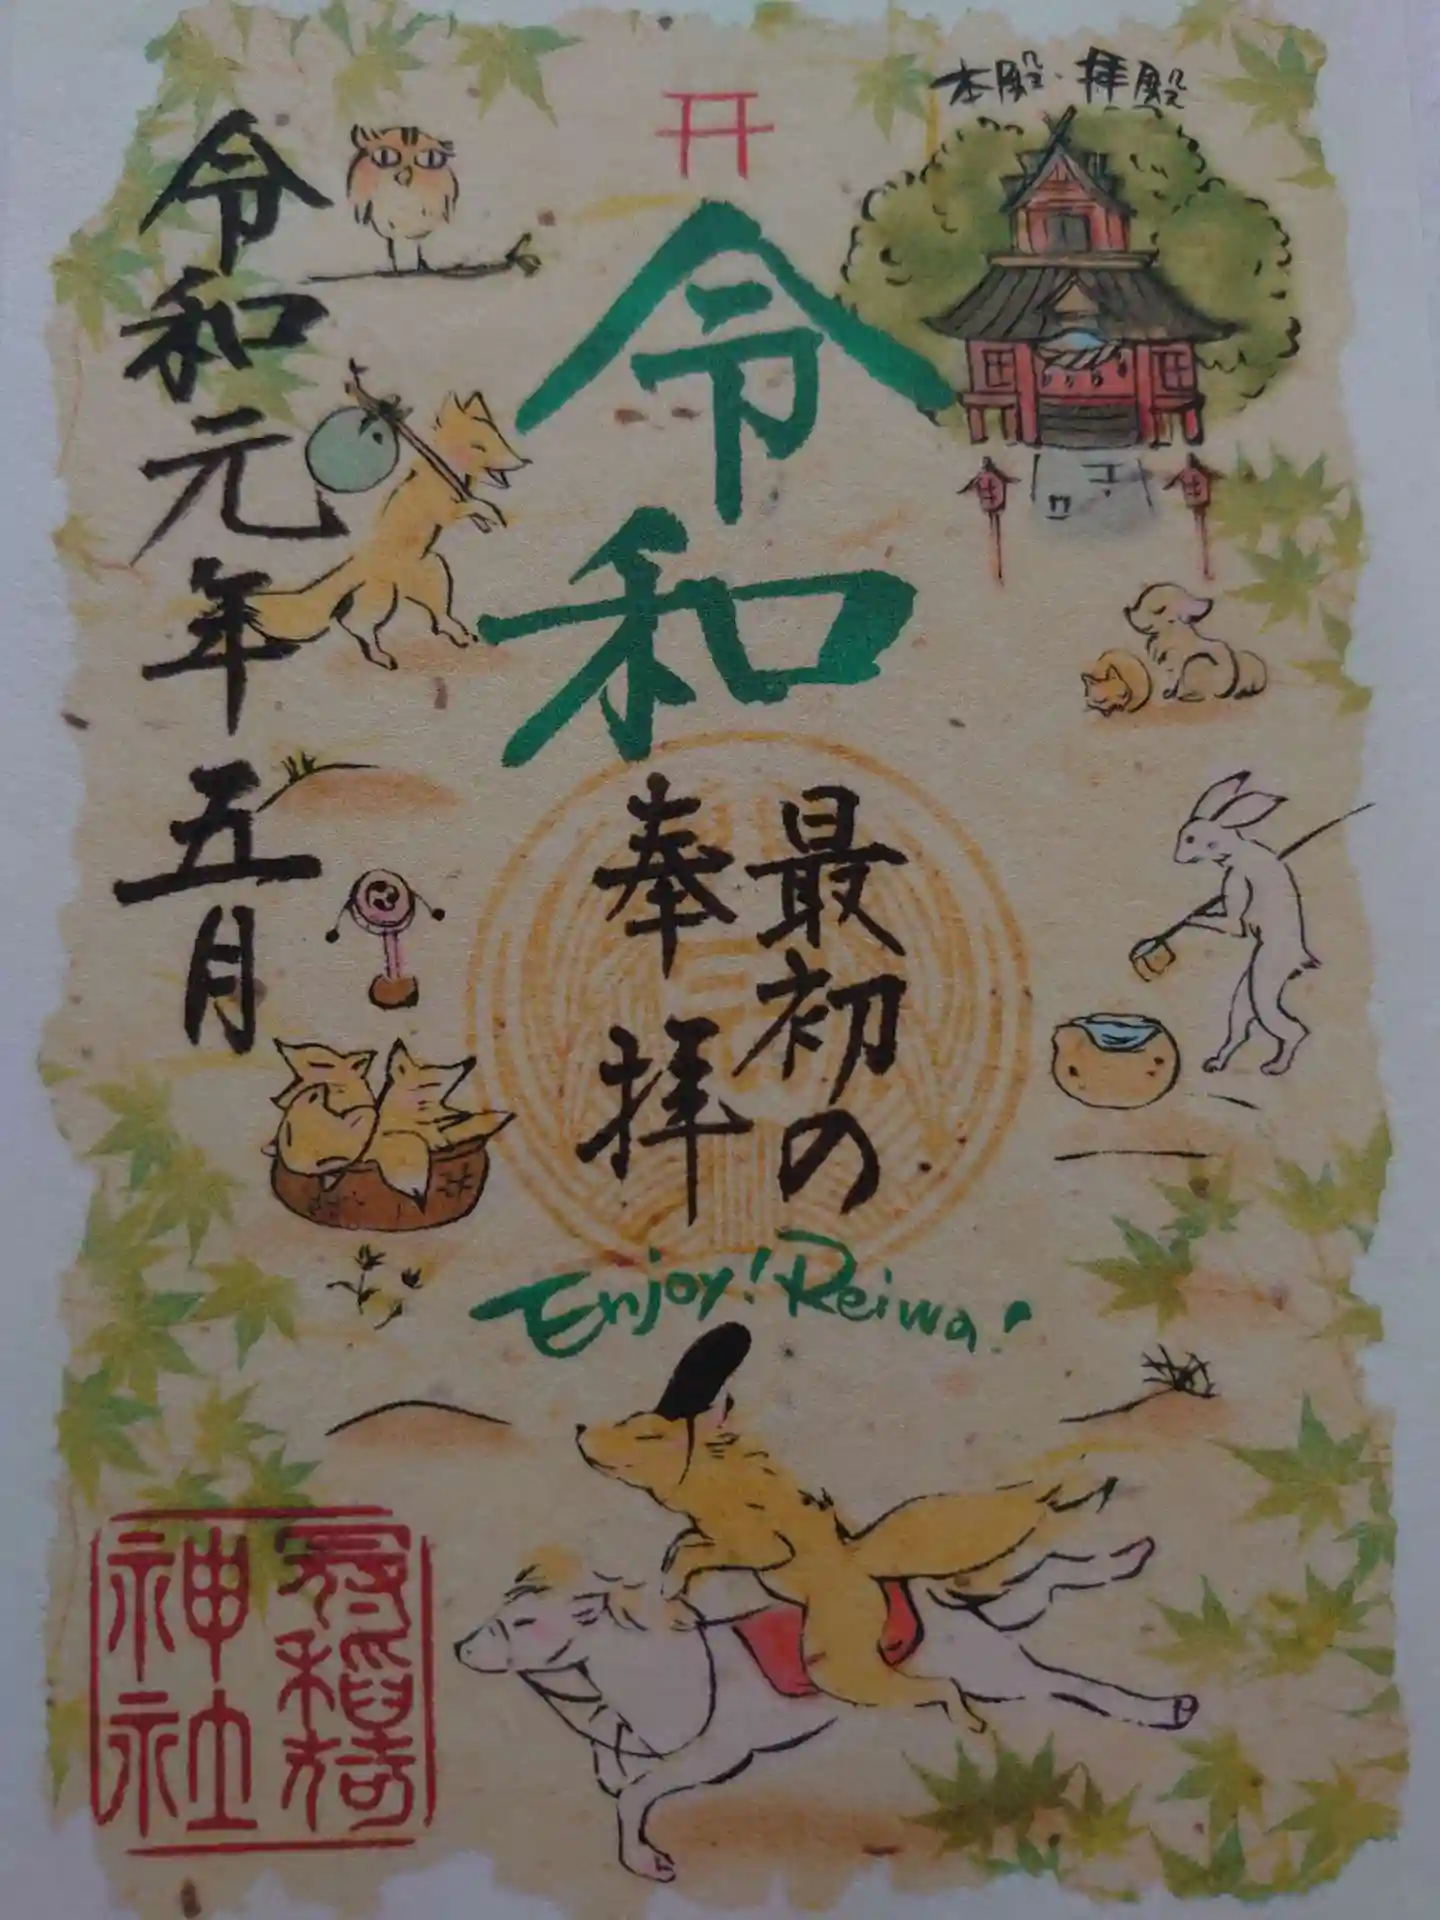 本殿・拝殿
令和
最初の
奉拝
Enjoy! Reiwa!
令和元年五月
冠稲荷
神社